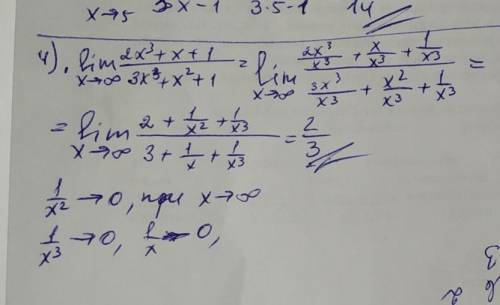 x→5 3x-1 3·5-1 14
4). lim x→∞ (2x³+x+1)/(3x³+x²+1) = lim x→∞ (2x³/x³ + x/x³ + 1/x³)/(3x³/x³ + x²/x³ + 1/x³) =
= lim x→∞ (2 + 1/x² + 1/x³)/(3 + 1/x + 1/x³) = 2/3
1/x² → 0, при x→∞
1/x³ → 0, 1/x → 0,